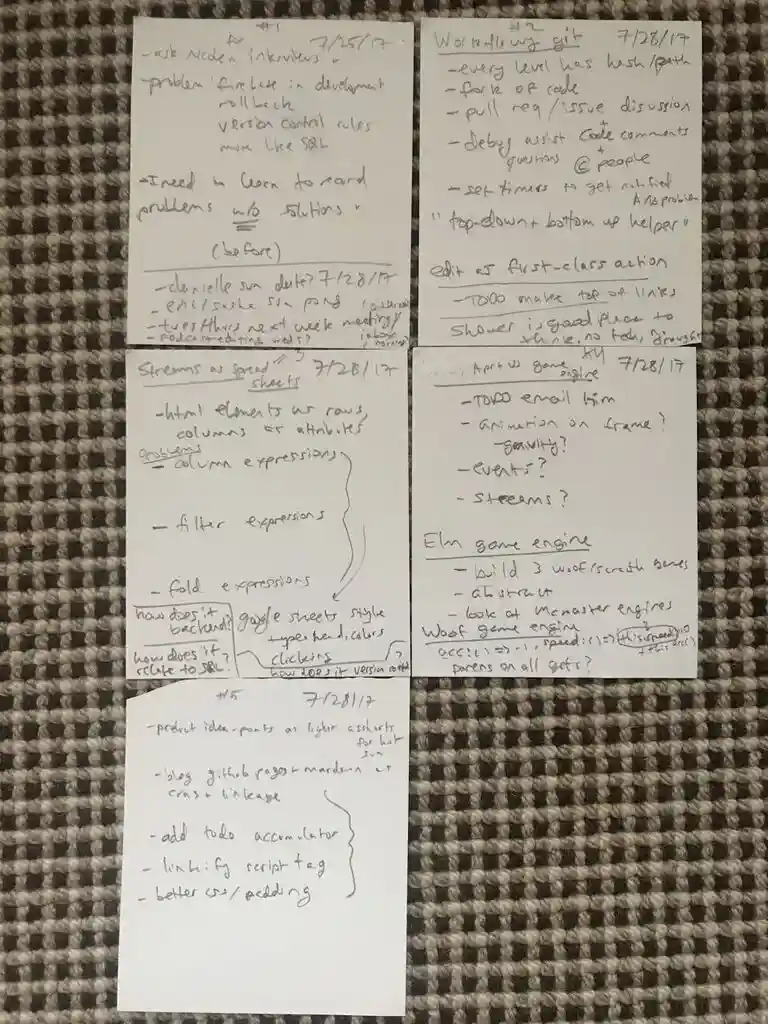 #1
7/25/17
- ask interviews
- problem firebase in development
rollback
version control rules
more like SQL
- I need to learn to record
problems w/o solutions
(before)
- danielle sun date? 7/28/17
- tues/thurs next week meeting
#2
Workflowy git 7/28/17
- every level has hash/path
- fork of code
- pull req/issue discussion
+
- debug assist code comments
questions + @ people
- set timers to get notified
"top-down + bottom up helper"
edit as first-class action
- TODO make top of links
Shower is good place to
think, no tech,
#3
Streams as spread 7/28/17
sheets
- html elements as rows,
columns as attributes
problems
- column expressions
- filter expressions
- fold expressions
how does it
backend?
google sheets style
types head, colors
how does it
relate to SQL?
clicking
how does it version control?
#4
game 7/28/17
engine
- TODO email him
- animation on frame?
- gravity?
- events?
- streams?
Elm game engine
- build 3 woof/scratch games
- abstract
- look at mcmaster engines
Woof game engine
parens on all gets?
#5 7/28/17
- product idea - pants as light as shorts
for hot
sun
- blog github pages + markdown
linkage
- add todo accumulator
- linkify script tag
- better css/padding